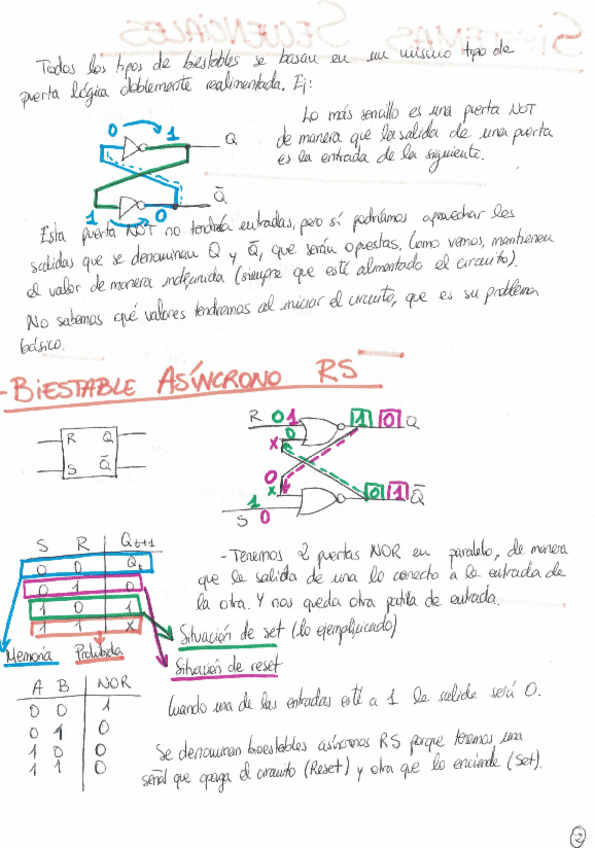 Todos los tipos de biestables se basan en un mismo tipo de
puerta lógica doblemente realimentada. Ej:
Lo más sencillo es una puerta NOT
de manera que la salida de una puerta
es la entrada de la siguiente.
0 1 Q
1 0 Q̅
Esta puerta NOT no tendría entradas, pero sí podríamos aprovechar las
salidas que se denominan Q y Q̅, que serán opuestas. Como vemos, mantienen
el valor de manera indefinida (siempre que esté alimentado el circuito).
No sabemos qué valores tendremos al iniciar el circuito, que es su problema
básico.
- BIESTABLE ASÍNCRONO RS
R Q
S Q̅
R 0 1 1 0 Q
0
x
0
x
1 0 1 Q̅
S 0
S R Qt+1
0 0 Qt
0 1 0
1 0 1
1 1 X
Memoria Prohibida
- Tenemos 2 puertas NOR en paralelo, de manera
que la salida de una lo conecto a la entrada de
la otra. Y nos queda otra patilla de entrada.
Situación de set (lo ejemplificado)
Situación de reset
A B NOR
0 0 1
0 1 0
1 0 0
1 1 0
Cuando una de las entradas esté a 1 la salida será 0.
Se denominan biestables asíncronos RS porque tenemos una
señal que apaga el circuito (Reset) y otra que lo enciende (Set).
2